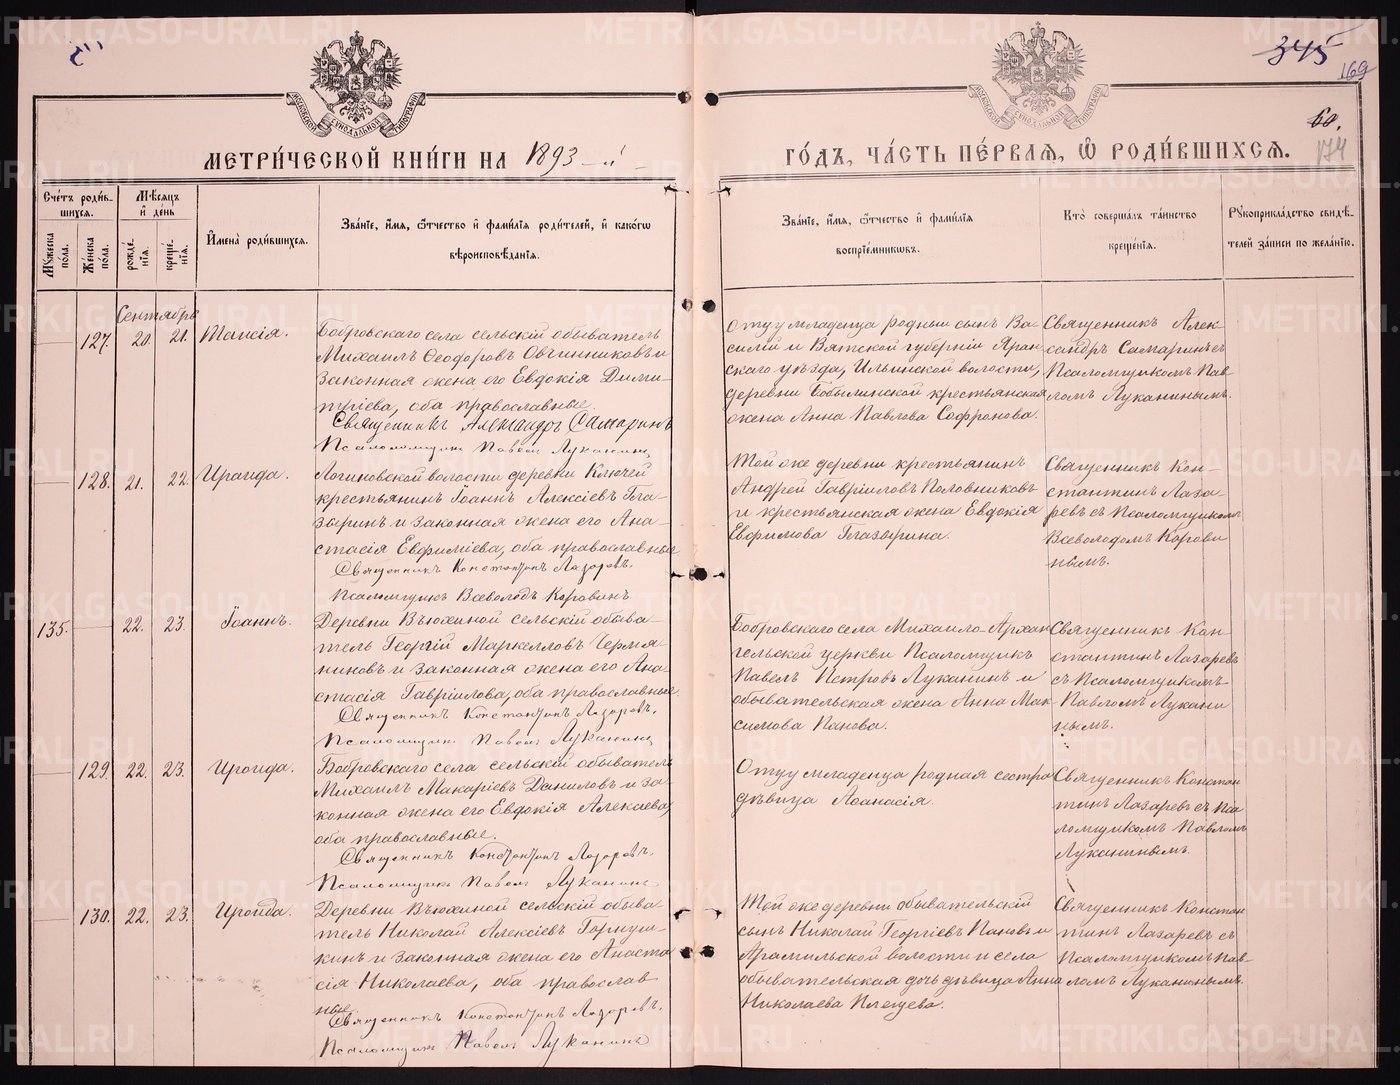 345
169
60.
174
МОСКОВСКОЙ СѴНОДАЛЬНОЙ ТИПОГРАФІИ
МОСКОВСКОЙ СѴНОДАЛЬНОЙ ТИПОГРАФІИ
МЕТРИ́ЧЕСКОЙ КНИ́ГИ НА 1893-й
ГО́ДЪ, ЧА́СТЬ ПЕ́РВАЯ, Ѡ РОДИ́ВШИХСЯ.
Сче́тъ роди́в-
шихся.
Мꙋжеска по́ла.
Же́нска по́ла.
Мѣ́сяцъ
и҆ де́нь
рожде́-
нїя.
креще́-
нїя.
И҆мена̀ роди́вшихся.
Зва́нїе, и҆́мя, ѻ҆́тчество и҆ фами́лїя роди́телей, и҆ како́гѡ
вѣроисповѣ́данїя.
Зва́нїе, и҆́мя, ѻ҆́тчество и҆ фами́лїя
воспрїе́мниковъ.
Кто̀ соверша́лъ та́инство
креще́нїя.
Рꙋкоприкла́дство свидѣ́-
телей за́писи по жела́нїю.
Сентябрь
127. 20. 21. Таисія.
Бобровскаго села сельскій обыватель
Михаилъ Ѳеодоровъ Овчинниковъ и
законная жена его Евдокія Дими-
тріева, оба православные.
Священникъ Александръ Самаринъ
Псаломщик Павел Луканинъ
Отцу младенца родный сынъ Ва-
силій и Вятской губерніи Яран-
скаго уѣзда, Ильинской волости,
деревни Бобылинской крестьянская
жена Анна Павлова Софронова.
Священникъ Алек-
сандръ Самаринъ съ
Псаломщикомъ Пав-
ломъ Луканинымъ.
128. 21. 22. Ираида.
Логиновской волости деревни Ключей
крестьянинъ Іоаннъ Алексіевъ Гла-
зыринъ и законная жена его Ана-
стасія Евѳиміева, оба православные
Священникъ Константинъ Лазоревъ.
Псаломщикъ Всеволодъ Коровинъ
Той же деревни крестьянинъ
Андрей Гавріиловъ Половниковъ
и крестьянская жена Евдокія
Евфимова Глазырина.
Священникъ Кон-
стантинъ Лаза-
ревъ съ Псаломщикомъ
Всеволодомъ Корови
нымъ.
135. 22. 23. Іоаннъ.
Деревни Въюхиной сельскій обыва-
тель Георгій Маркелловъ Чермя-
ниновъ и законная жена его Ана-
стасія Гавріилова, оба православные.
Священникъ Константинъ Лазоревъ.
Псаломщик Павел Луканинъ
Бобровскаго села Михаило-Архан
гельской церкви Псаломщикъ
Павелъ Петровъ Луканинъ и
обывательская жена Анна Мак-
симова Панова.
Священникъ Кон-
стантинъ Лазаревъ
съ Псаломщикомъ
Павломъ Лукани
нымъ.
129. 22. 23. Ираида.
Бобровскаго села сельскій обыватель
Михаилъ Макаріевъ Даниловъ и за-
конная жена его Евдокія Алексіева,
оба православные.
Священникъ Константинъ Лазоревъ.
Псаломщик Павел Луканинъ
Отцу младенца родная сестра
дѣвица Аѳанасія.
Священникъ Констан
тинъ Лазаревъ съ Пса-
ломщикомъ Павломъ
Луканинымъ.
130. 22. 23. Ираида.
Деревни Въюхиной сельскій обыва
тель Николай Алексіевъ Горнуш-
кинъ и законная жена его Анаста
сія Николаева, оба православ
ные.
Священникъ Константинъ Лазоревъ.
Псаломщикъ Павелъ Луканинъ
Той же деревни обывательскій
сынъ Николай Георгіевъ Пановъ и
Арамильской волости и села
обывательская дочь дѣвица Анна
Николаева Плещева.
Священникъ Констан
тинъ Лазаревъ съ
Псаломщикомъ Пав-
ломъ Луканинымъ.
METRIKI.GASO-URAL.RU